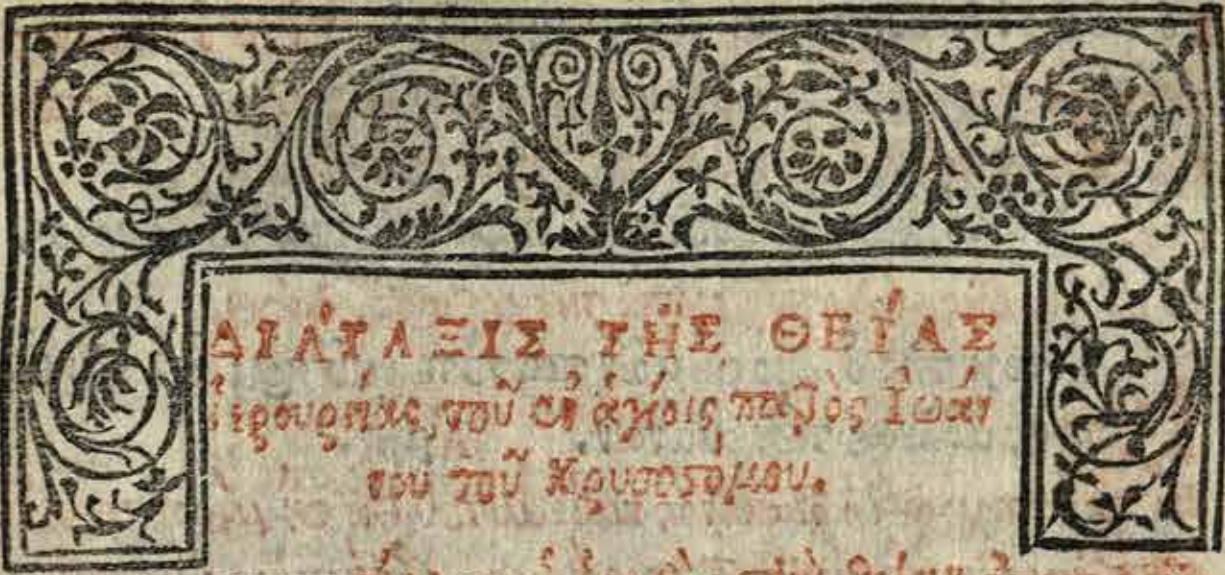 ΔΙΑ´ΤΑΞΙΣ ΤΗ͂Σ ΘΕΙ´ΑΣ
ἱερουργίας, τοῦ ἐν ἁγίοις πατρὸς Ἰωάν
νου τοῦ Χρυσοστόμου.
τὴν θείαν